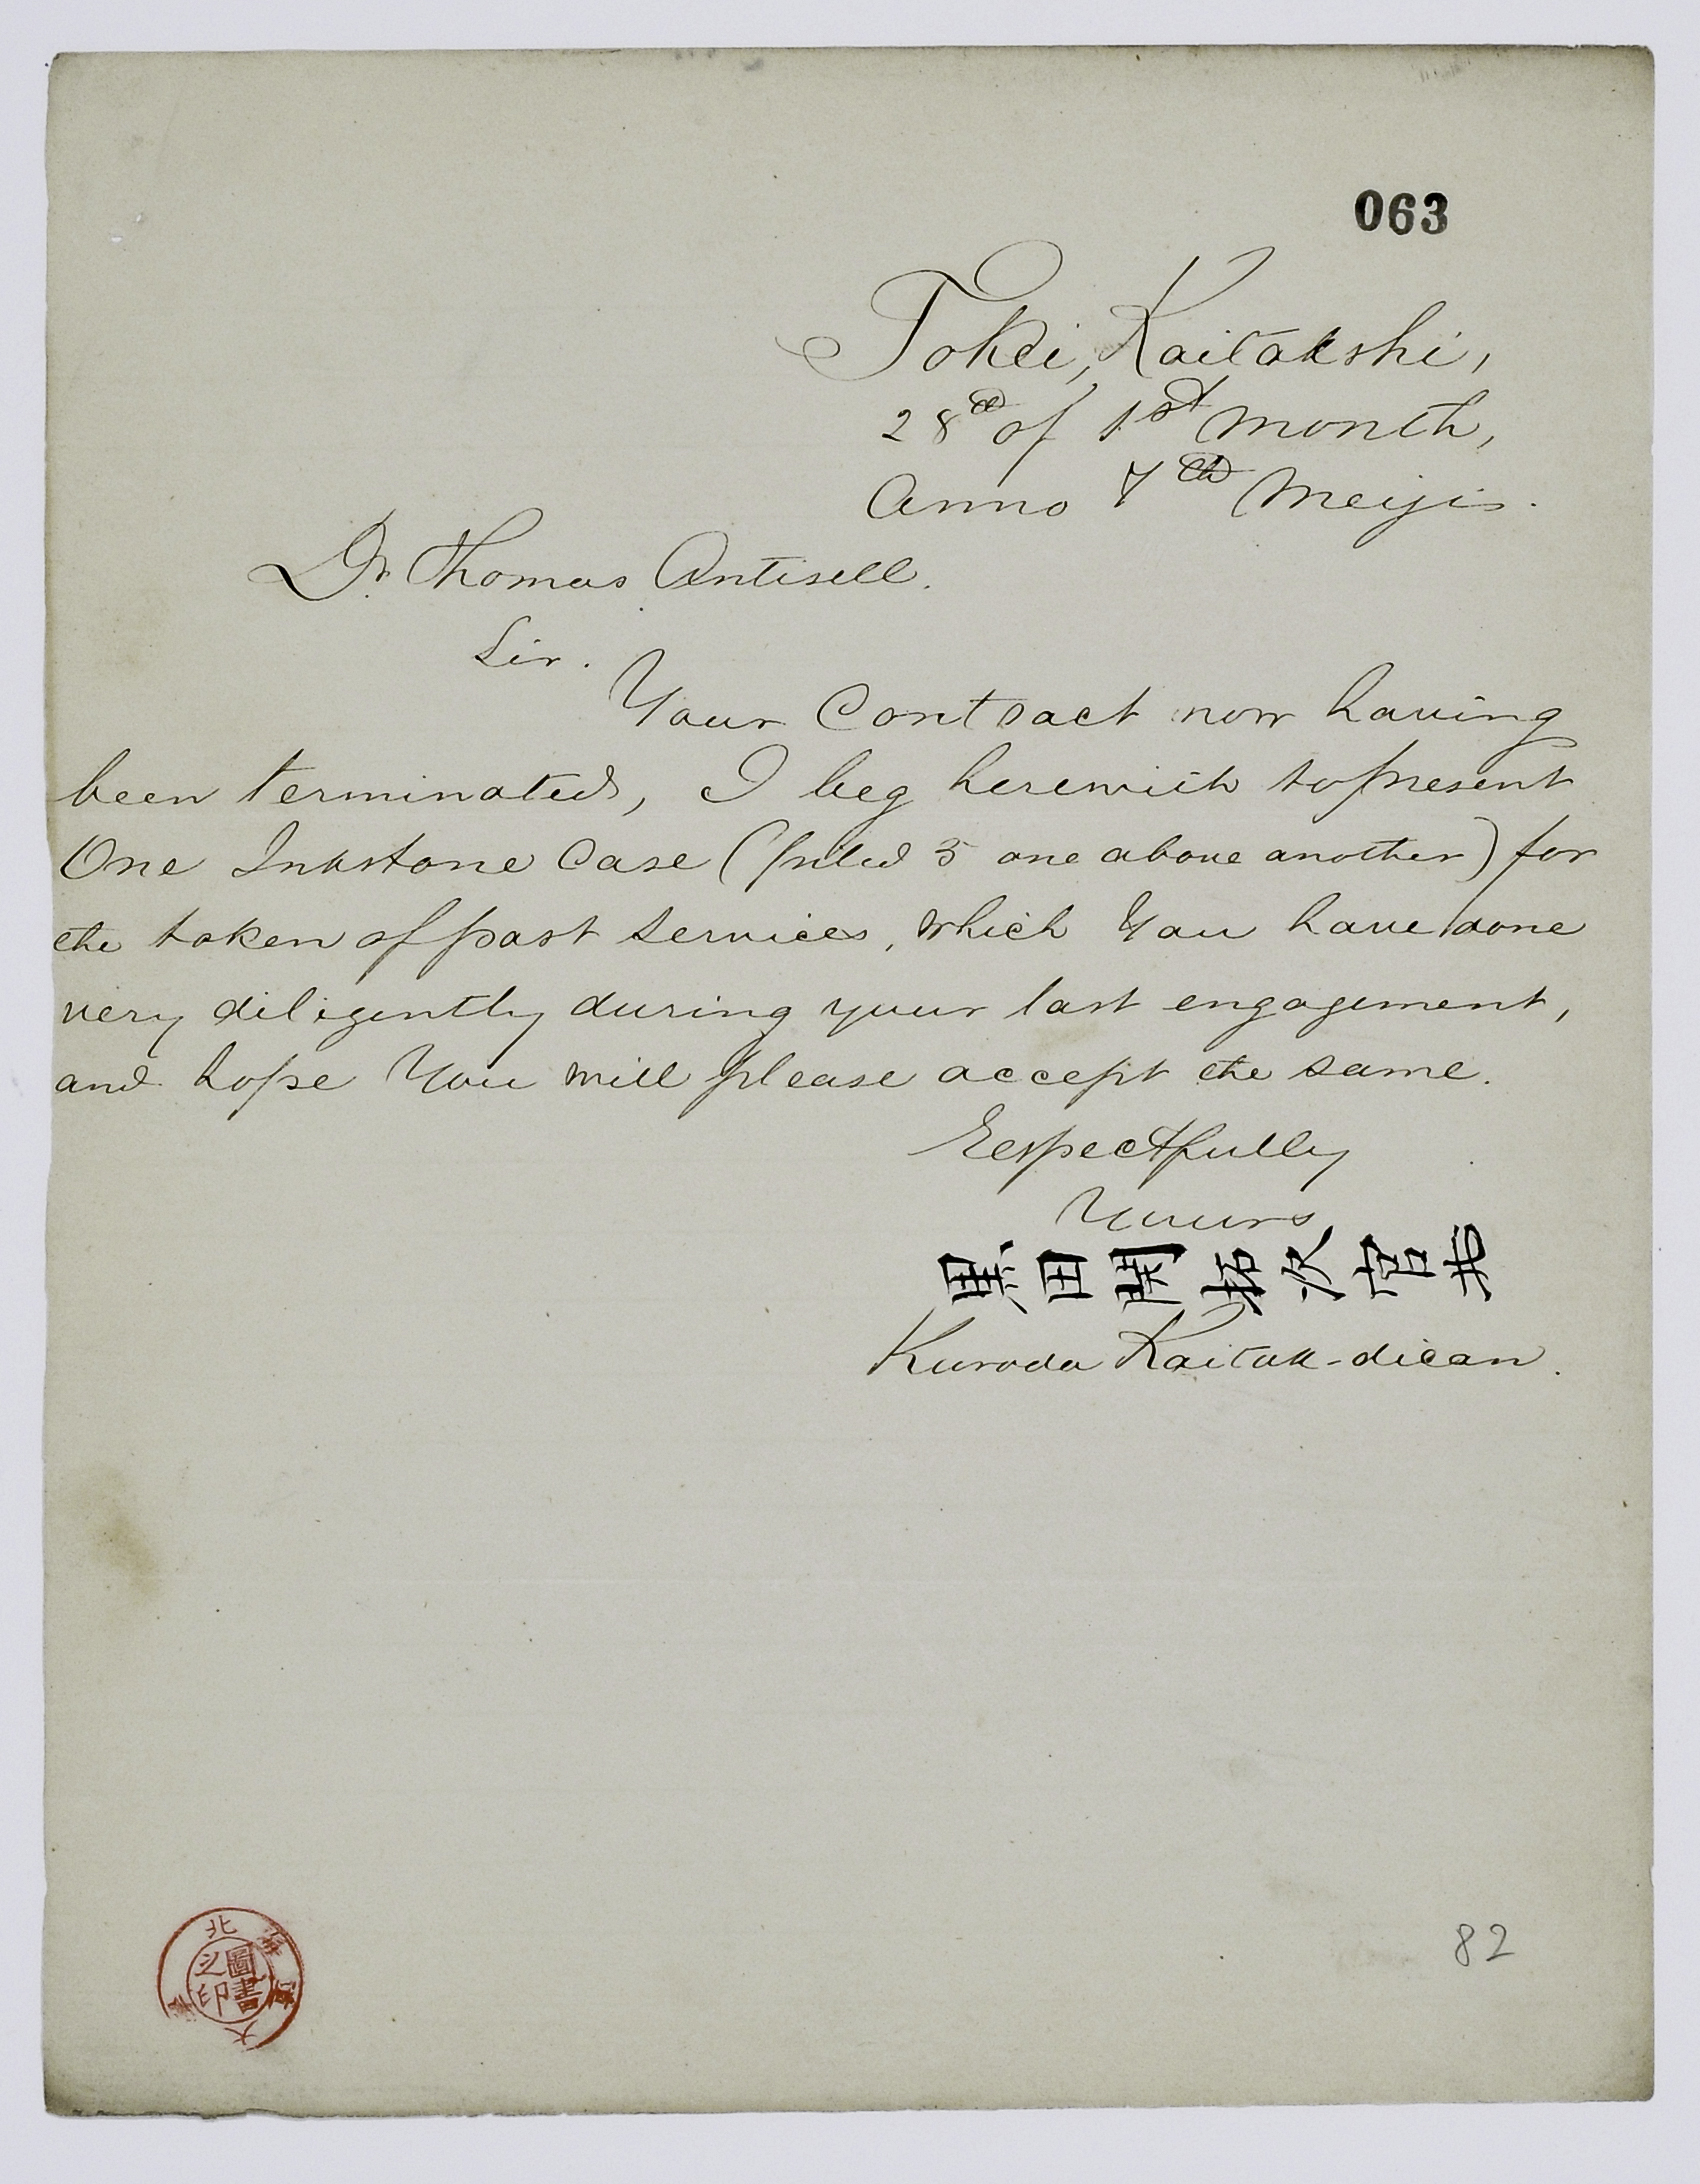 063
Tokei, Kaitakshi,
28th of 1st month,
Anno 7th Meiji.
Dr. Thomas Antisell.
Sir.
Your Contract now having
been terminated, I beg herewith to present
One Inkstone Case (piled 5 one above another) for
the token of past services, which You have done
very diligently during your last engagement,
and hope You will please accept the same.
Respectfully
Yours
黒田開拓次官
Kuroda Kaitak-dican.
北海大
圖書之印
82